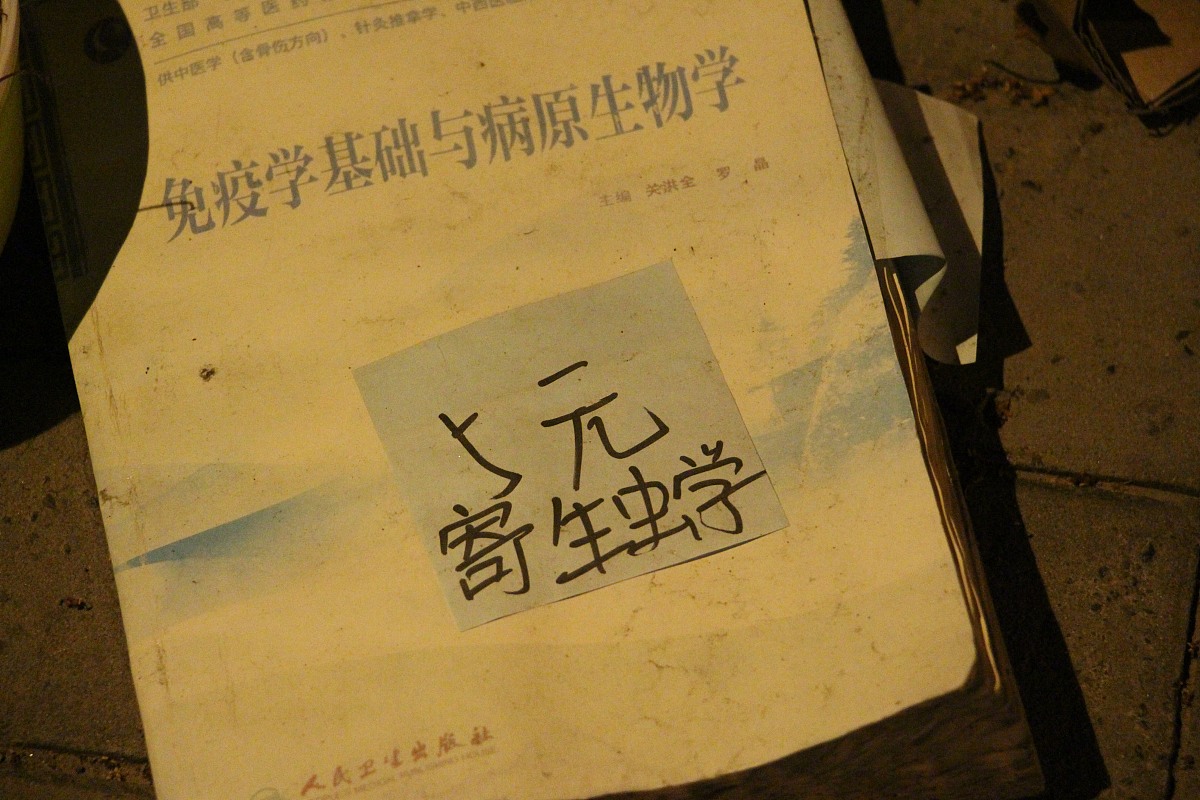 卫生部
全国高等医药
供中医学（含骨伤方向）、针灸推拿学、中西医临
免疫学基础与病原生物学
主编 关洪全 罗晶
元
寄生虫学
人民卫生出版社
PEOPLE'S MEDICAL PUBLISHING HOUSE